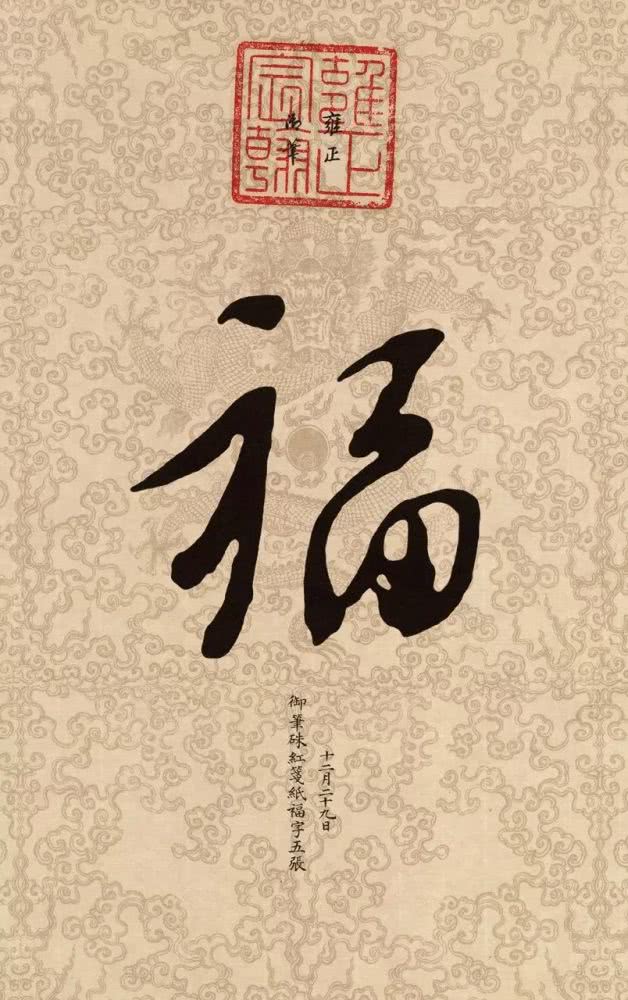 雍正宸翰
雍正
御筆
福
十二月二十九日
御筆硃紅箋紙福字五張